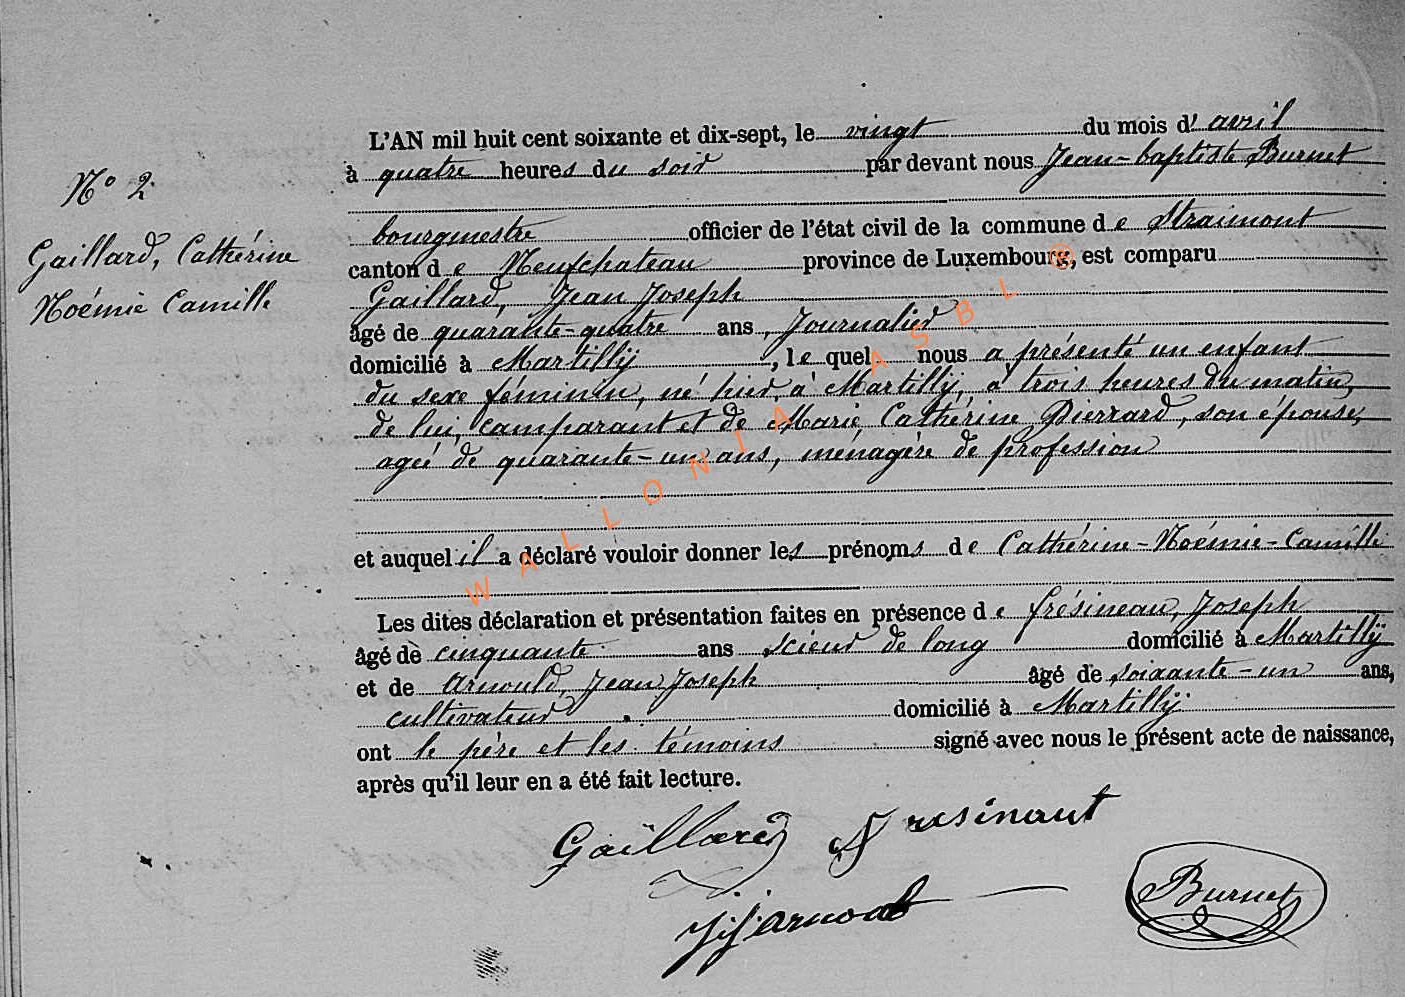 L'AN mil huit cent soixante et dix-sept, le vingt du mois d' avril
à quatre heures du soir par devant nous Jean-baptiste Burnet
bourgmestre officier de l'état civil de la commune de Straimont
canton de Neufchateau province de Luxembourg, est comparu
Gaillard, Jean Joseph
âgé de quarante-quatre ans, Journalier
domicilié à Martilly, lequel nous a présenté un enfant
du sexe féminin, né hier, à Martilly, à trois heures du matin,
de lui, comparant et de Marie Cathérine Pierrard, son épouse,
ageé de quarante-un ans, ménagère de profession
et auquel il a déclaré vouloir donner les prénoms de Cathérine-Noémie-Camille
Les dites déclaration et présentation faites en présence de frésineau, Joseph
âgé de cinquante ans scieur de long domicilié à Martilly
et de Arnould, Jean Joseph âgé de soixante-un ans,
cultivateur domicilié à Martilly
ont le père et les témoins signé avec nous le présent acte de naissance,
après qu'il leur en a été fait lecture.
N° 2
Gaillard, Cathérine
Noémie Camille
Gaillard Fresinaut
JJ arnould
Burnet
WALLONIA ASBL ®